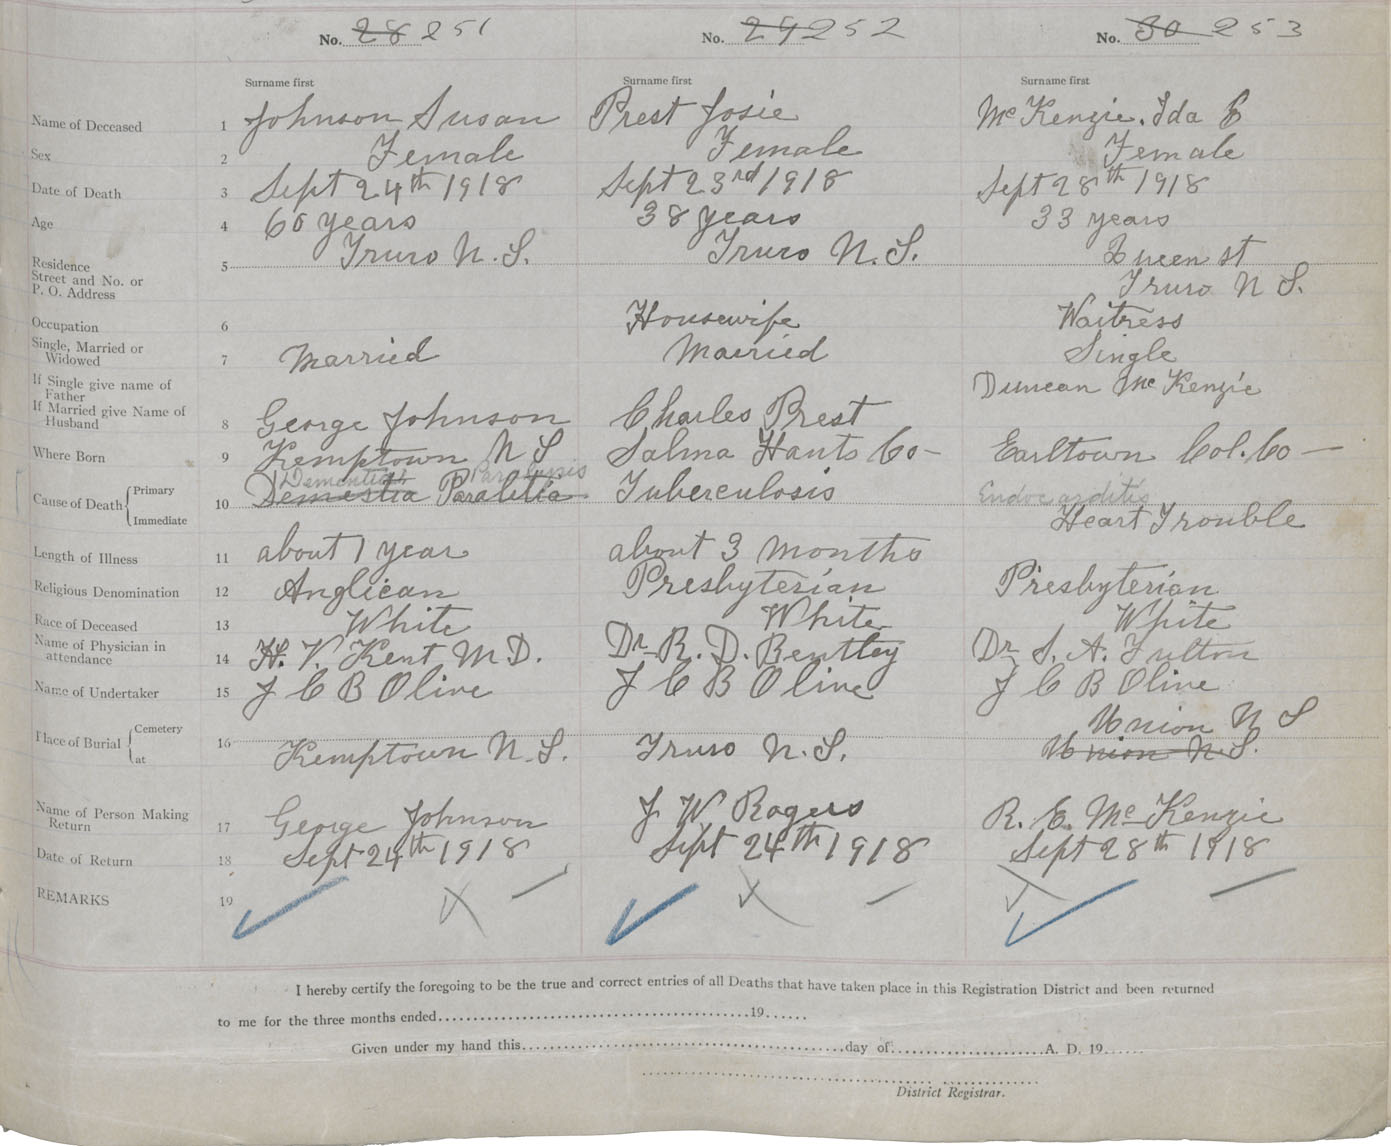 No. 28 251 No. 29 252 No. 30 253
Surname first Surname first Surname first
Name of Deceased 1 Johnson Susan Prest Josie McKenzie, Ida E
Sex 2 Female Female Female
Date of Death 3 Sept 24th 1918 Sept 23rd 1918 Sept 28th 1918
Age 4 60 years 38 years 33 years
Residence 5 Truro N.S. Truro N.S. Queen st
Street and No. or
P. O. Address Truro N S.
Occupation 6 Housewife Waitress
Single, Married or
Widowed 7 Married Married Single
If Single give name of
Father Duncan McKenzie
If Married give Name of
Husband 8 George Johnson Charles Prest
Where Born 9 Kemptown N S Selma Hants Co - Earltown Col. Co -
Dementia Paralysis
Cause of Death Primary 10 Demestia Paralitia Tuberculosis Endocarditis
Immediate Heart Trouble
Length of Illness 11 about 1 year about 3 months
Religious Denomination 12 Anglican Presbyterian Presbyterian
Race of Deceased 13 White White White
Name of Physician in
attendance 14 H. V. Kent M.D. Dr R. D. Bentley Dr S. A. Fulton
Name of Undertaker 15 J C B Olive J C B Olive J C B Olive
Place of Burial Cemetery 16 Union N S
at Kemptown N.S. Truro N.S. Union N.S.
Name of Person Making
Return 17 George Johnson J W Rogers R. E. McKenzie
Date of Return 18 Sept 24th 1918 Sept 24th 1918 Sept 28th 1918
REMARKS 19
I hereby certify the foregoing to be the true and correct entries of all Deaths that have taken place in this Registration District and been returned
to me for the three months ended..........19......
Given under my hand this..........day of..........A. D. 19......
District Registrar.